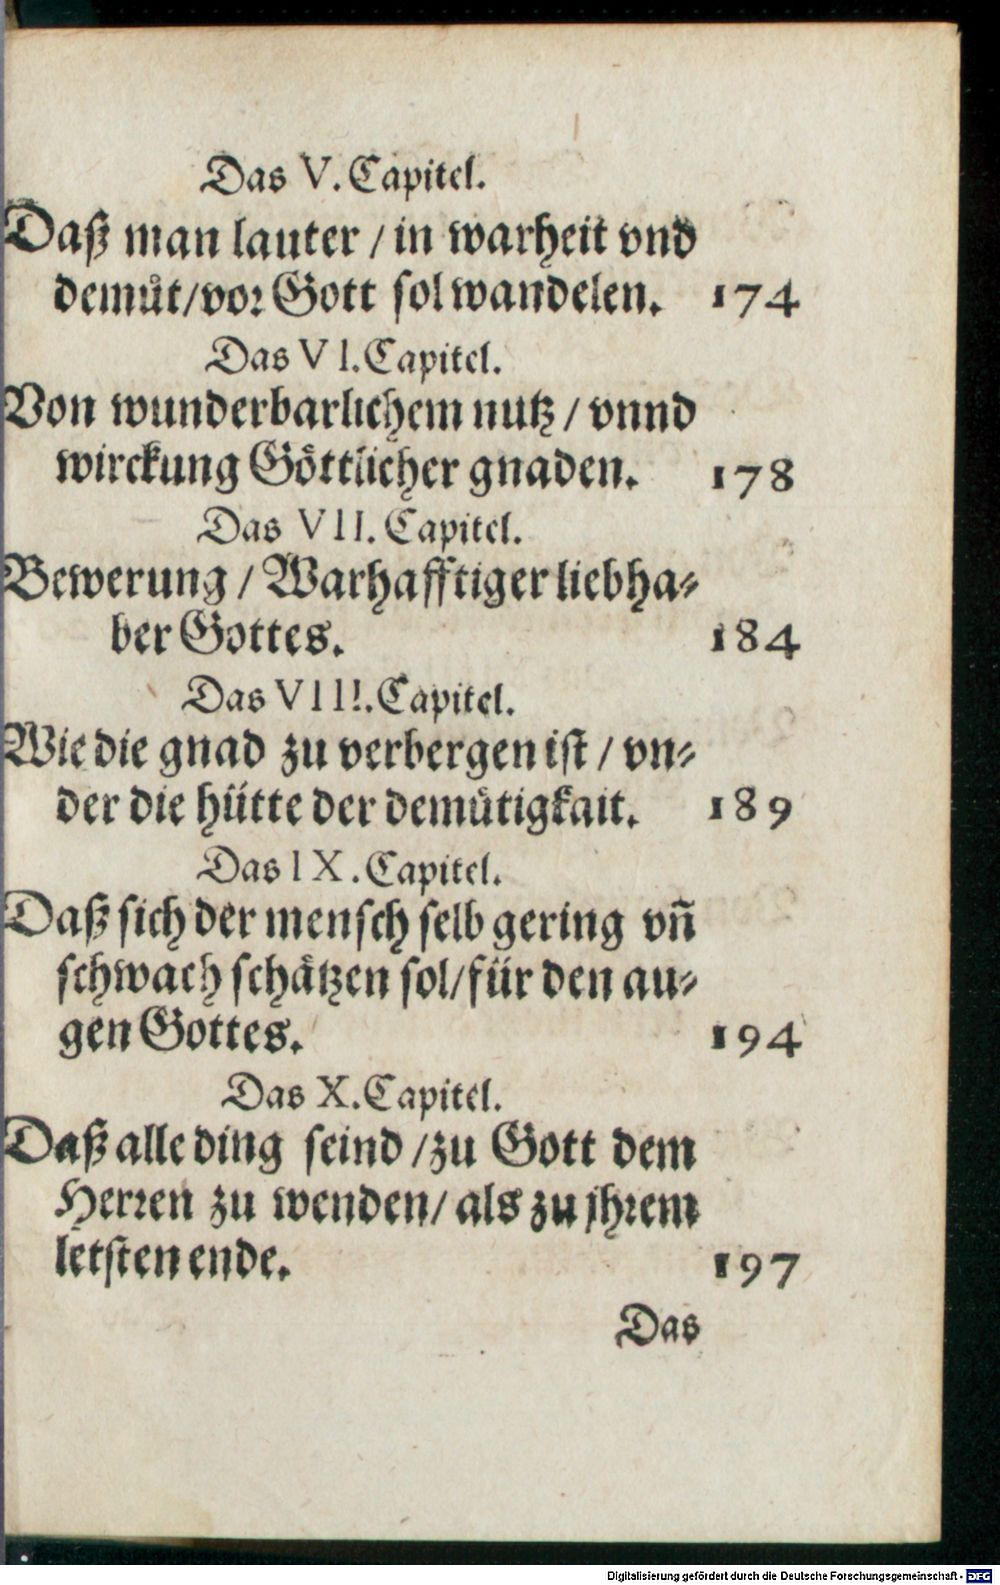 Das V. Capitel.
Daß man lauter / in warheit vnd
demuͤt/vor Gott sol wandelen. 174
Das VI. Capitel.
Von wunderbarlichem nutz / vnnd
wirckung Goͤttlicher gnaden. 178
Das VII. Capitel.
Bewerung / Warhafftiger liebha-
ber Gottes. 184
Das VIII. Capitel.
Wie die gnad zu verbergen ist / vn-
der die huͤtte der demuͤtigkait. 189
Das IX. Capitel.
Daß sich der mensch selb gering vñ
schwach schaͤtzen sol/für den au-
gen Gottes. 194
Das X. Capitel.
Daß alle ding seind /zu Gott dem
Herren zu wenden/ als zu jhrem
letsten ende. 197
Das
Digitalisierung gefördert durch die Deutsche Forschungsgemeinschaft - DFG